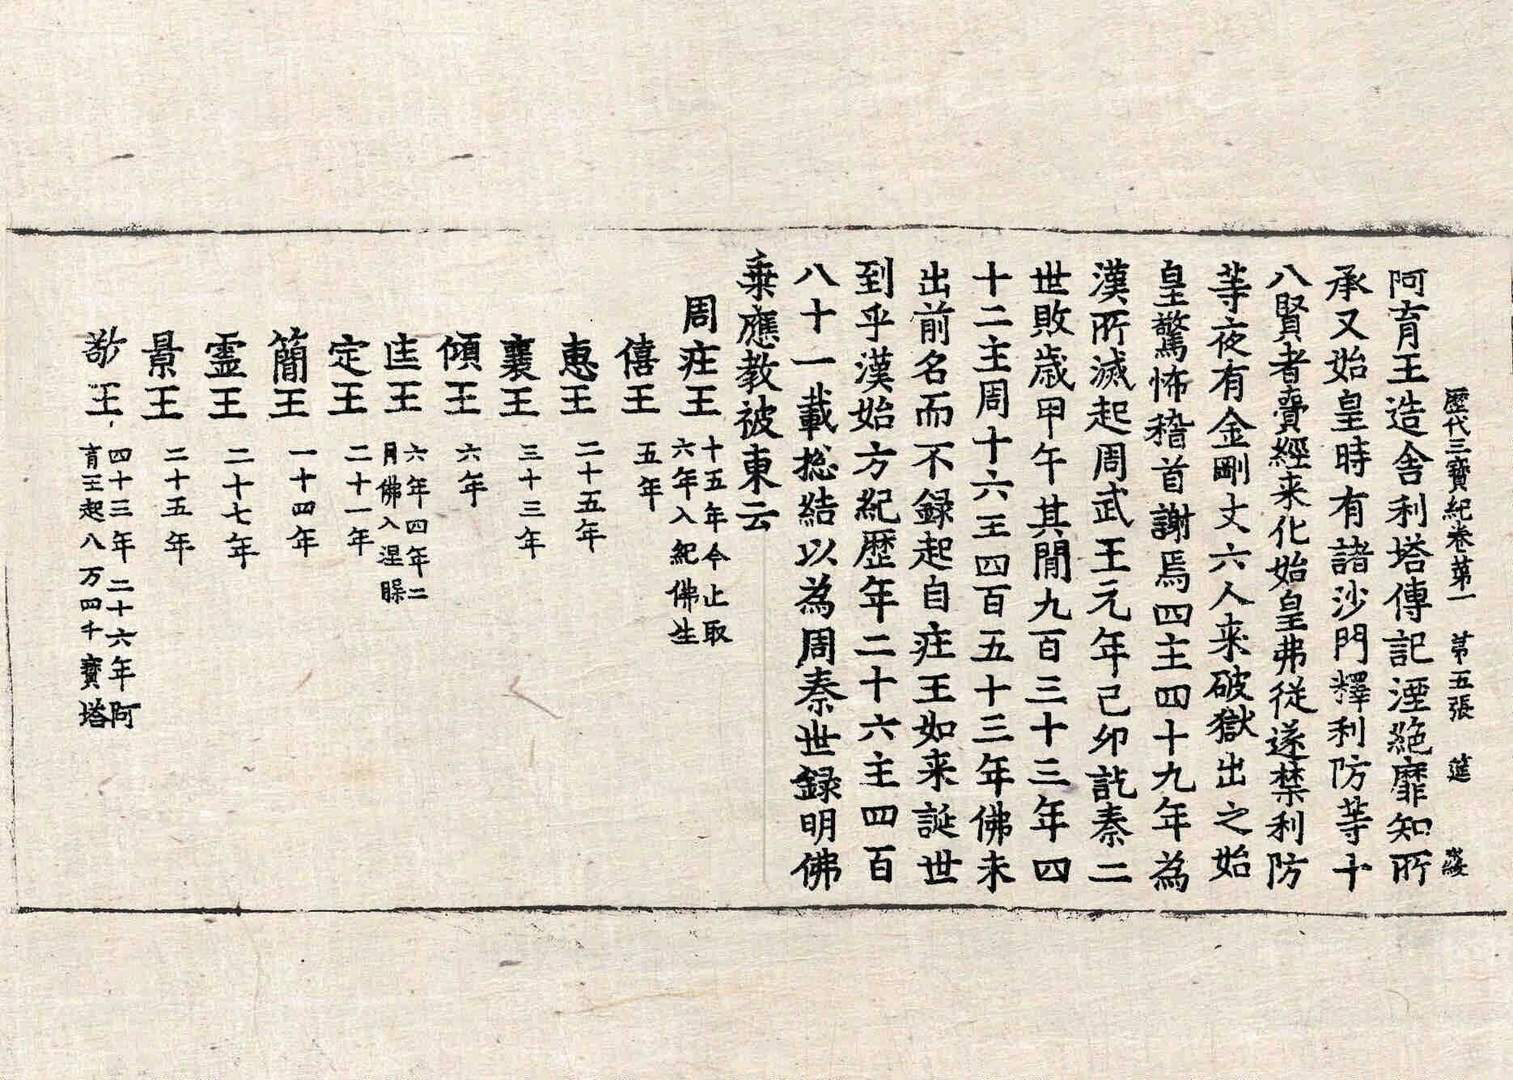 歷代三寶紀卷苐一 苐五張 筵
阿育王造舍利塔傳記湮絕靡知所
承又始皇時有諸沙門釋利防等十
八賢者賷經来化始皇弗從遂禁利防
等夜有金剛丈六人来破獄出之始
皇驚怖稽首謝焉四主四十九年為
漢所滅起周武王元年己夘訖秦二
世敗歲甲午其閒九百三十三年四
十二主周十六王四百五十三年佛未
出前名而不録起自莊王如来誕世
到乎漢始方紀歷年二十六主四百
八十一載捴結以為周秦世録明佛
乗應教被東云
周莊王 十五年今止取
六年入紀佛生
僖王 五年
惠王 二十五年
襄王 三十三年
傾王 六年
匡王 六年四年二
月佛入涅槃
定王 二十一年
簡王 一十四年
霊王 二十七年
景王 二十五年
敬王 四十三年二十六年阿
育王起八万四千寶塔